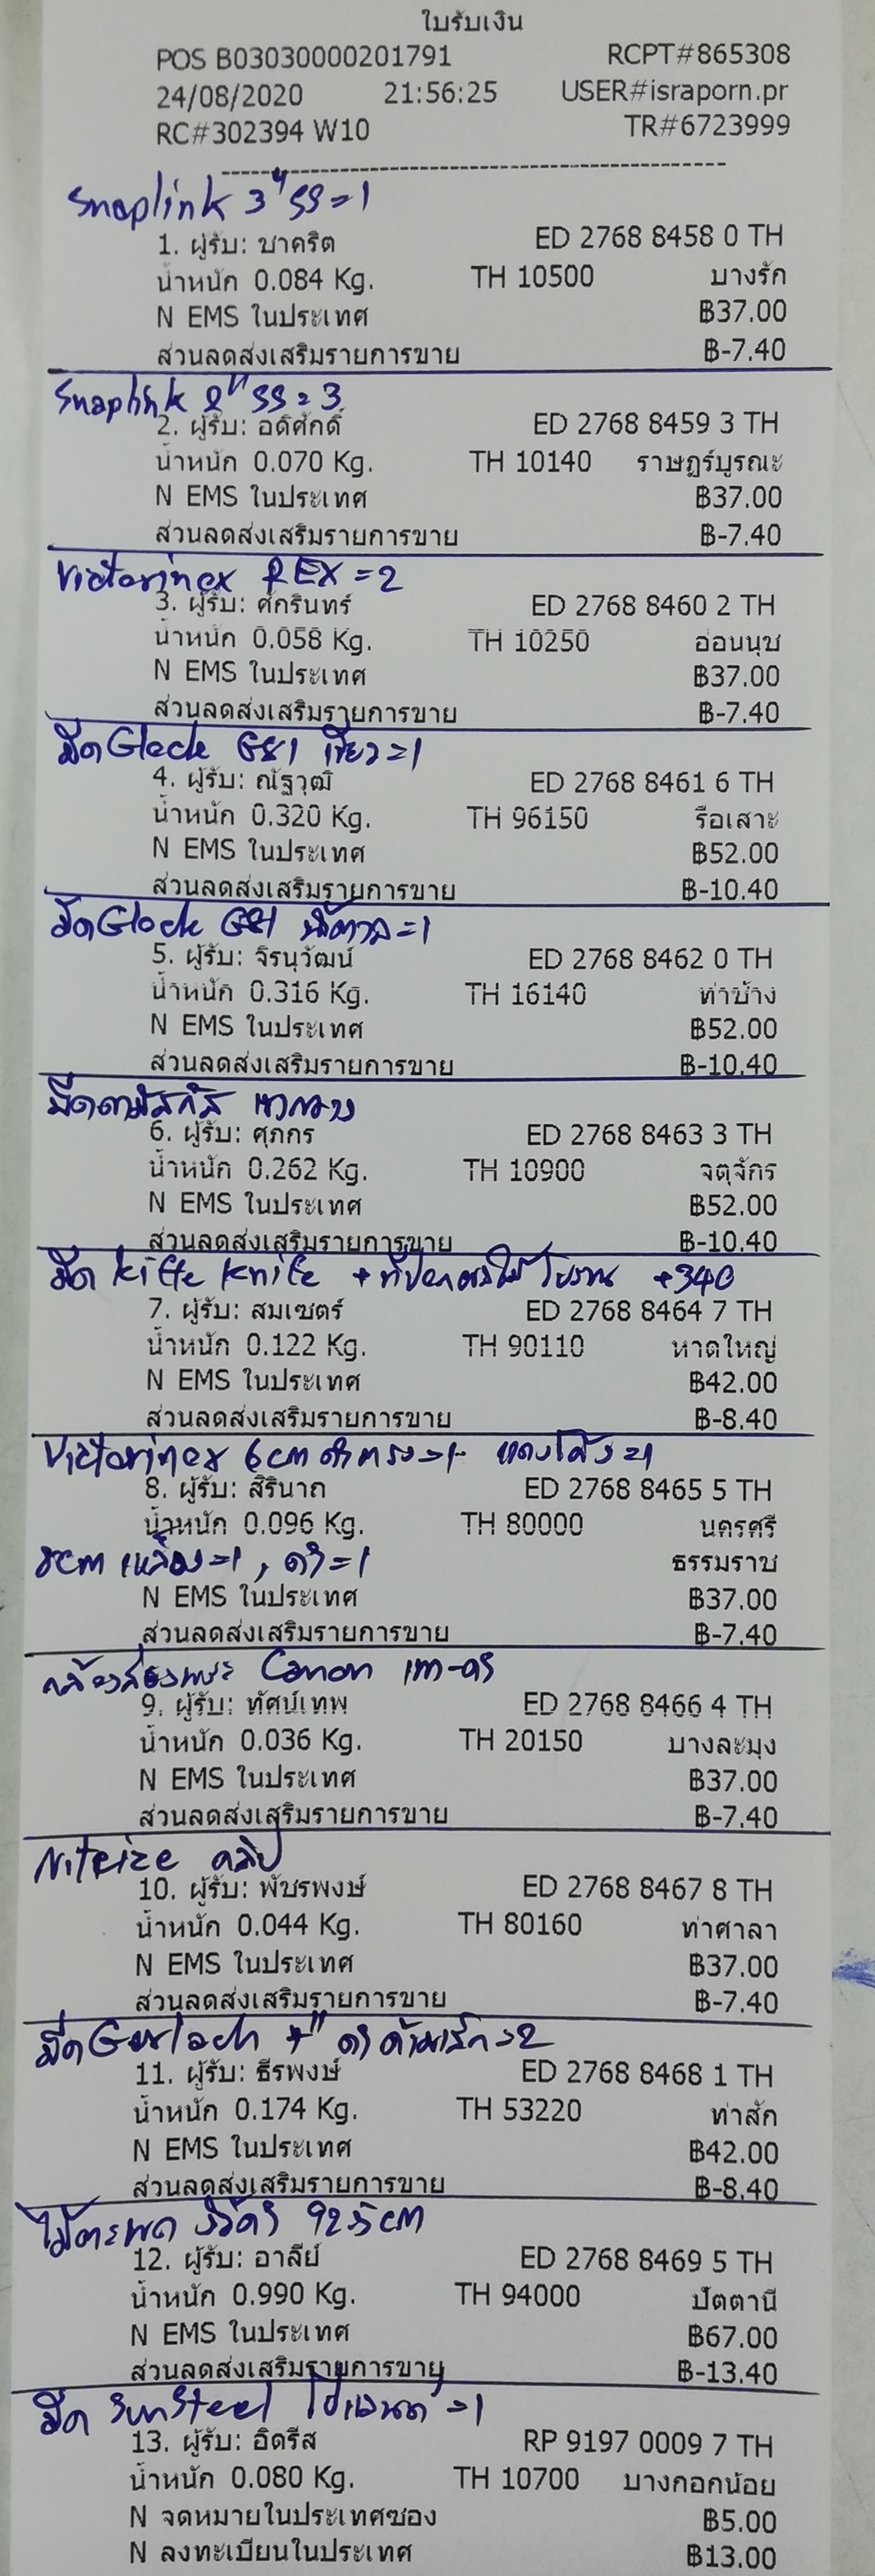 ใบรับเงิน
POS B03030000201791 RCPT#865308
24/08/2020 21:56:25 USER#israporn.pr
RC#302394 W10 TR#6723999
Snaplink 3" SS=1
1. ผู้รับ: ชาคริต ED 2768 8458 0 TH
น้ำหนัก 0.084 Kg. TH 10500 บางรัก
N EMS ในประเทศ ฿37.00
ส่วนลดส่งเสริมรายการขาย ฿-7.40
Snaplink 2" SS=3
2. ผู้รับ: อดิศักดิ์ ED 2768 8459 3 TH
น้ำหนัก 0.070 Kg. TH 10140 ราษฎร์บูรณะ
N EMS ในประเทศ ฿37.00
ส่วนลดส่งเสริมรายการขาย ฿-7.40
Victorinox REX=2
3. ผู้รับ: ศักรินทร์ ED 2768 8460 2 TH
น้ำหนัก 0.058 Kg. TH 10250 อ่อนนุช
N EMS ในประเทศ ฿37.00
ส่วนลดส่งเสริมรายการขาย ฿-7.40
มีด Glock G81 เขียว=1
4. ผู้รับ: ณัฐวุฒิ ED 2768 8461 6 TH
น้ำหนัก 0.320 Kg. TH 96150 รือเสาะ
N EMS ในประเทศ ฿52.00
ส่วนลดส่งเสริมรายการขาย ฿-10.40
มีด Glock G81 น้ำตาล=1
5. ผู้รับ: จิรนุวัฒน์ ED 2768 8462 0 TH
น้ำหนัก 0.316 Kg. TH 16140 ท่าช้าง
N EMS ในประเทศ ฿52.00
ส่วนลดส่งเสริมรายการขาย ฿-10.40
มีดดามัสกัส
6. ผู้รับ: ศุภกร ED 2768 8463 3 TH
น้ำหนัก 0.262 Kg. TH 10900 จตุจักร
N EMS ในประเทศ ฿52.00
ส่วนลดส่งเสริมรายการขาย ฿-10.40
มีด kiffe knife + +340
7. ผู้รับ: สมเชตร์ ED 2768 8464 7 TH
น้ำหนัก 0.122 Kg. TH 90110 หาดใหญ่
N EMS ในประเทศ ฿42.00
ส่วนลดส่งเสริมรายการขาย ฿-8.40
Victorinox 6cm ดำตรง=1 แดงโค้ง=1
8. ผู้รับ: สิรินาถ ED 2768 8465 5 TH
น้ำหนัก 0.096 Kg. TH 80000 นครศรี
8cm เหลือง=1, ดำ=1 ธรรมราช
N EMS ในประเทศ ฿37.00
ส่วนลดส่งเสริมรายการขาย ฿-7.40
กล้องส่องพระ Canon เทา-ดำ
9. ผู้รับ: ทัศน์เทพ ED 2768 8466 4 TH
น้ำหนัก 0.036 Kg. TH 20150 บางละมุง
N EMS ในประเทศ ฿37.00
ส่วนลดส่งเสริมรายการขาย ฿-7.40
Niteize คลิป
10. ผู้รับ: พัชรพงษ์ ED 2768 8467 8 TH
น้ำหนัก 0.044 Kg. TH 80160 ท่าศาลา
N EMS ในประเทศ ฿37.00
ส่วนลดส่งเสริมรายการขาย ฿-7.40
มีด Gerlach ดำ ด้ามเล็ก=2
11. ผู้รับ: ธีรพงษ์ ED 2768 8468 1 TH
น้ำหนัก 0.174 Kg. TH 53220 ท่าสัก
N EMS ในประเทศ ฿42.00
ส่วนลดส่งเสริมรายการขาย ฿-8.40
ไม้ตะพด 92.5cm
12. ผู้รับ: อาลีย์ ED 2768 8469 5 TH
น้ำหนัก 0.990 Kg. TH 94000 ปัตตานี
N EMS ในประเทศ ฿67.00
ส่วนลดส่งเสริมรายการขาย ฿-13.40
มีด SunSteel =1
13. ผู้รับ: อิดรีส RP 9197 0009 7 TH
น้ำหนัก 0.080 Kg. TH 10700 บางกอกน้อย
N จดหมายในประเทศซอง ฿5.00
N ลงทะเบียนในประเทศ ฿13.00